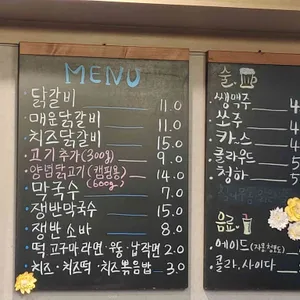 MENU
닭갈비 11.0
매운닭갈비 11.0
치즈닭갈비 15.0
고기추가(300g) 9.0
양념닭고기(캠핑용) 14.0
(600g)
막국수 7.0
쟁반막국수 15.0
쟁반소바 8.0
떡·고구마·라면·우동·납작면 2.0
치즈·치즈떡·치즈볶음밥 3.0
술
생맥주 4
쏘주 4
카스 4
클라우드 5
청하 5
음료
에이드
콜라,사이다